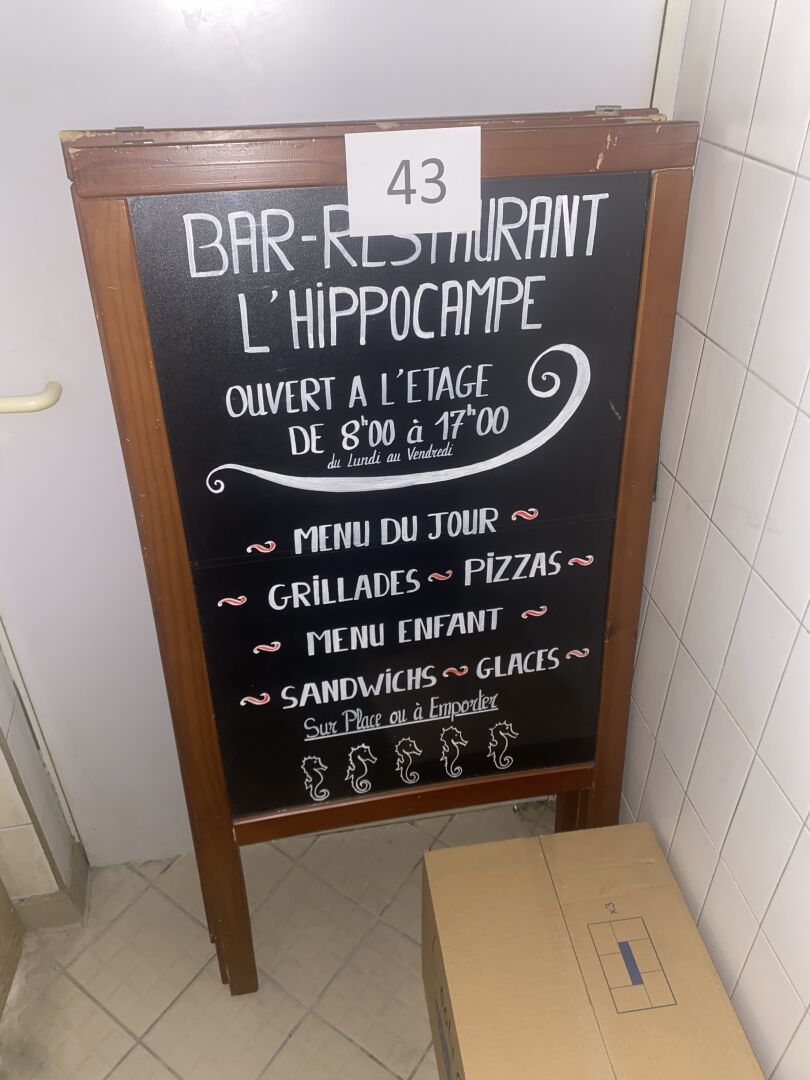 43
BAR-RESTAURANT
L'HIPPOCAMPE
OUVERT A L'ETAGE
DE 8h00 à 17h00
du Lundi au Vendredi
~ MENU DU JOUR ~
~ GRILLADES ~ PIZZAS ~
~ MENU ENFANT ~
~ SANDWICHS ~ GLACES ~
Sur Place ou à Emporter
x3